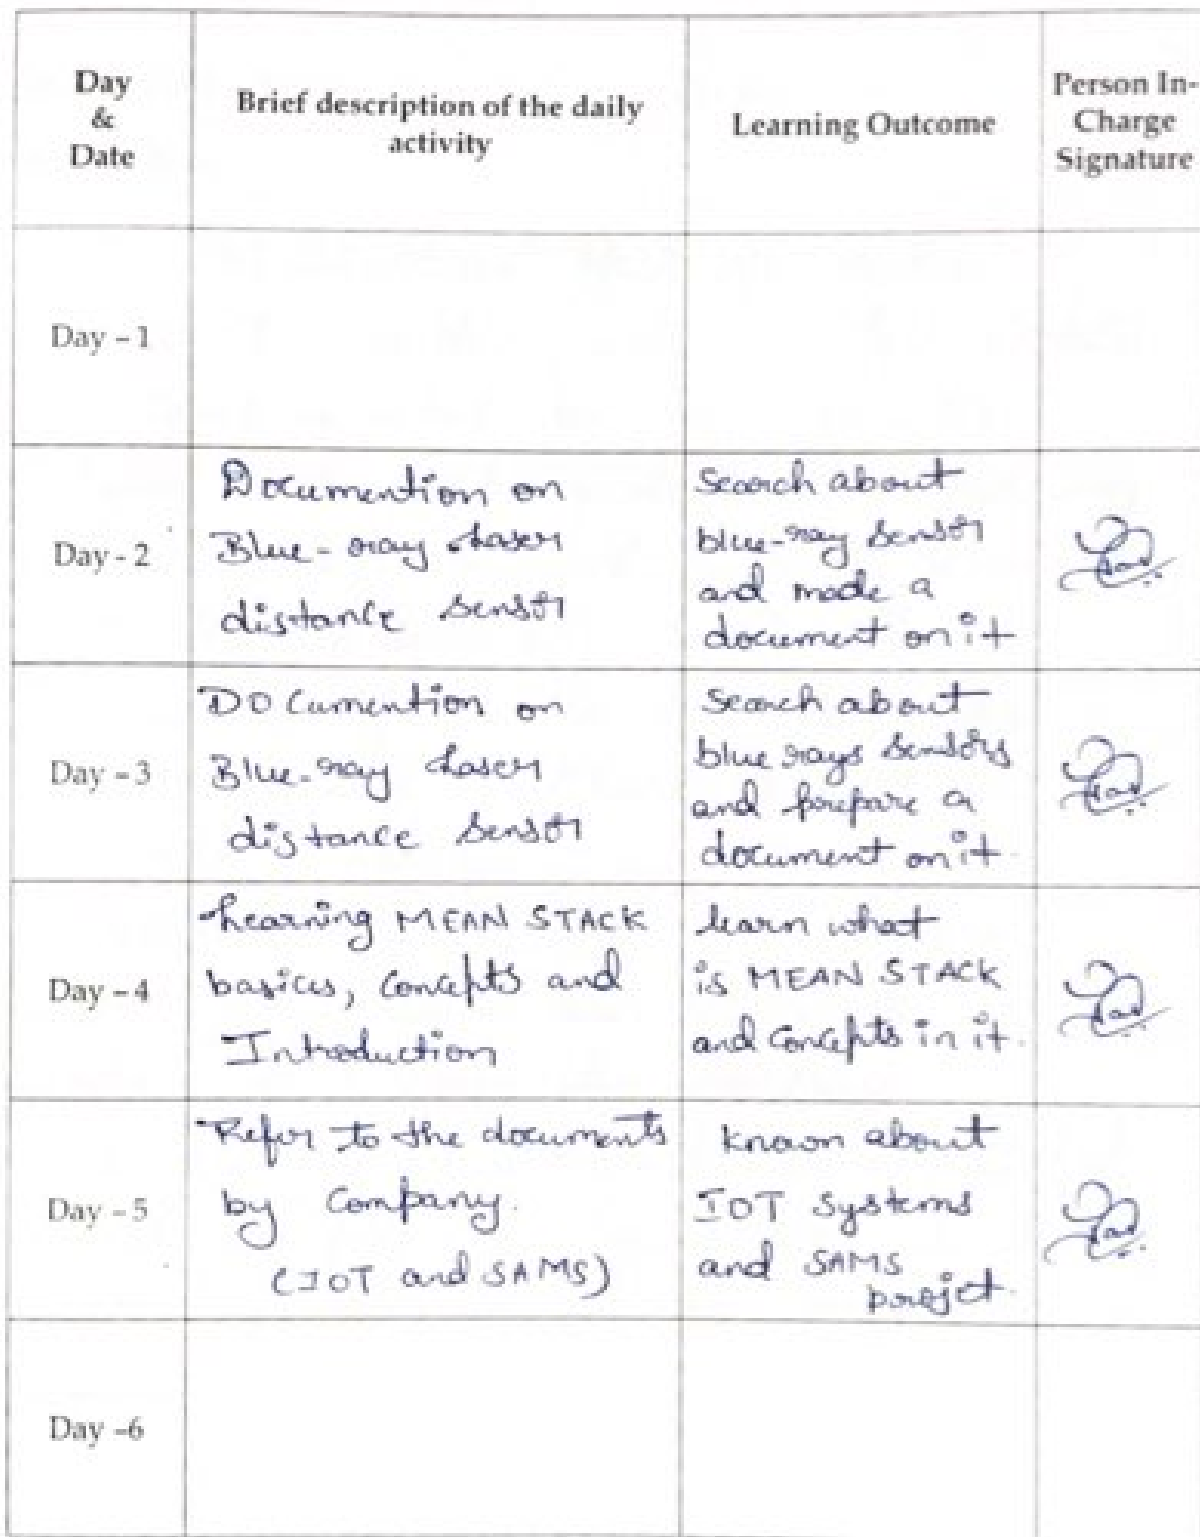 Day
&
Date
Brief description of the daily
activity
Learning Outcome
Person In-
Charge
Signature
Day – 1
Day - 2
Documention on
Blue-ray Laser
distance sensor
Search about
blue-ray sensor
and made a
document on it
Day – 3
DOCumention on
Blue-ray Laser
distance sensor
Search about
blue rays sensors
and prepare a
document on it.
Day – 4
Learning MEAN STACK
basics, Concepts and
Introduction
learn what
is MEAN STACK
and concepts in it.
Day – 5
Refer to the documents
by Company.
(IOT and SAMS)
known about
IOT Systems
and SAMS
projet.
Day –6